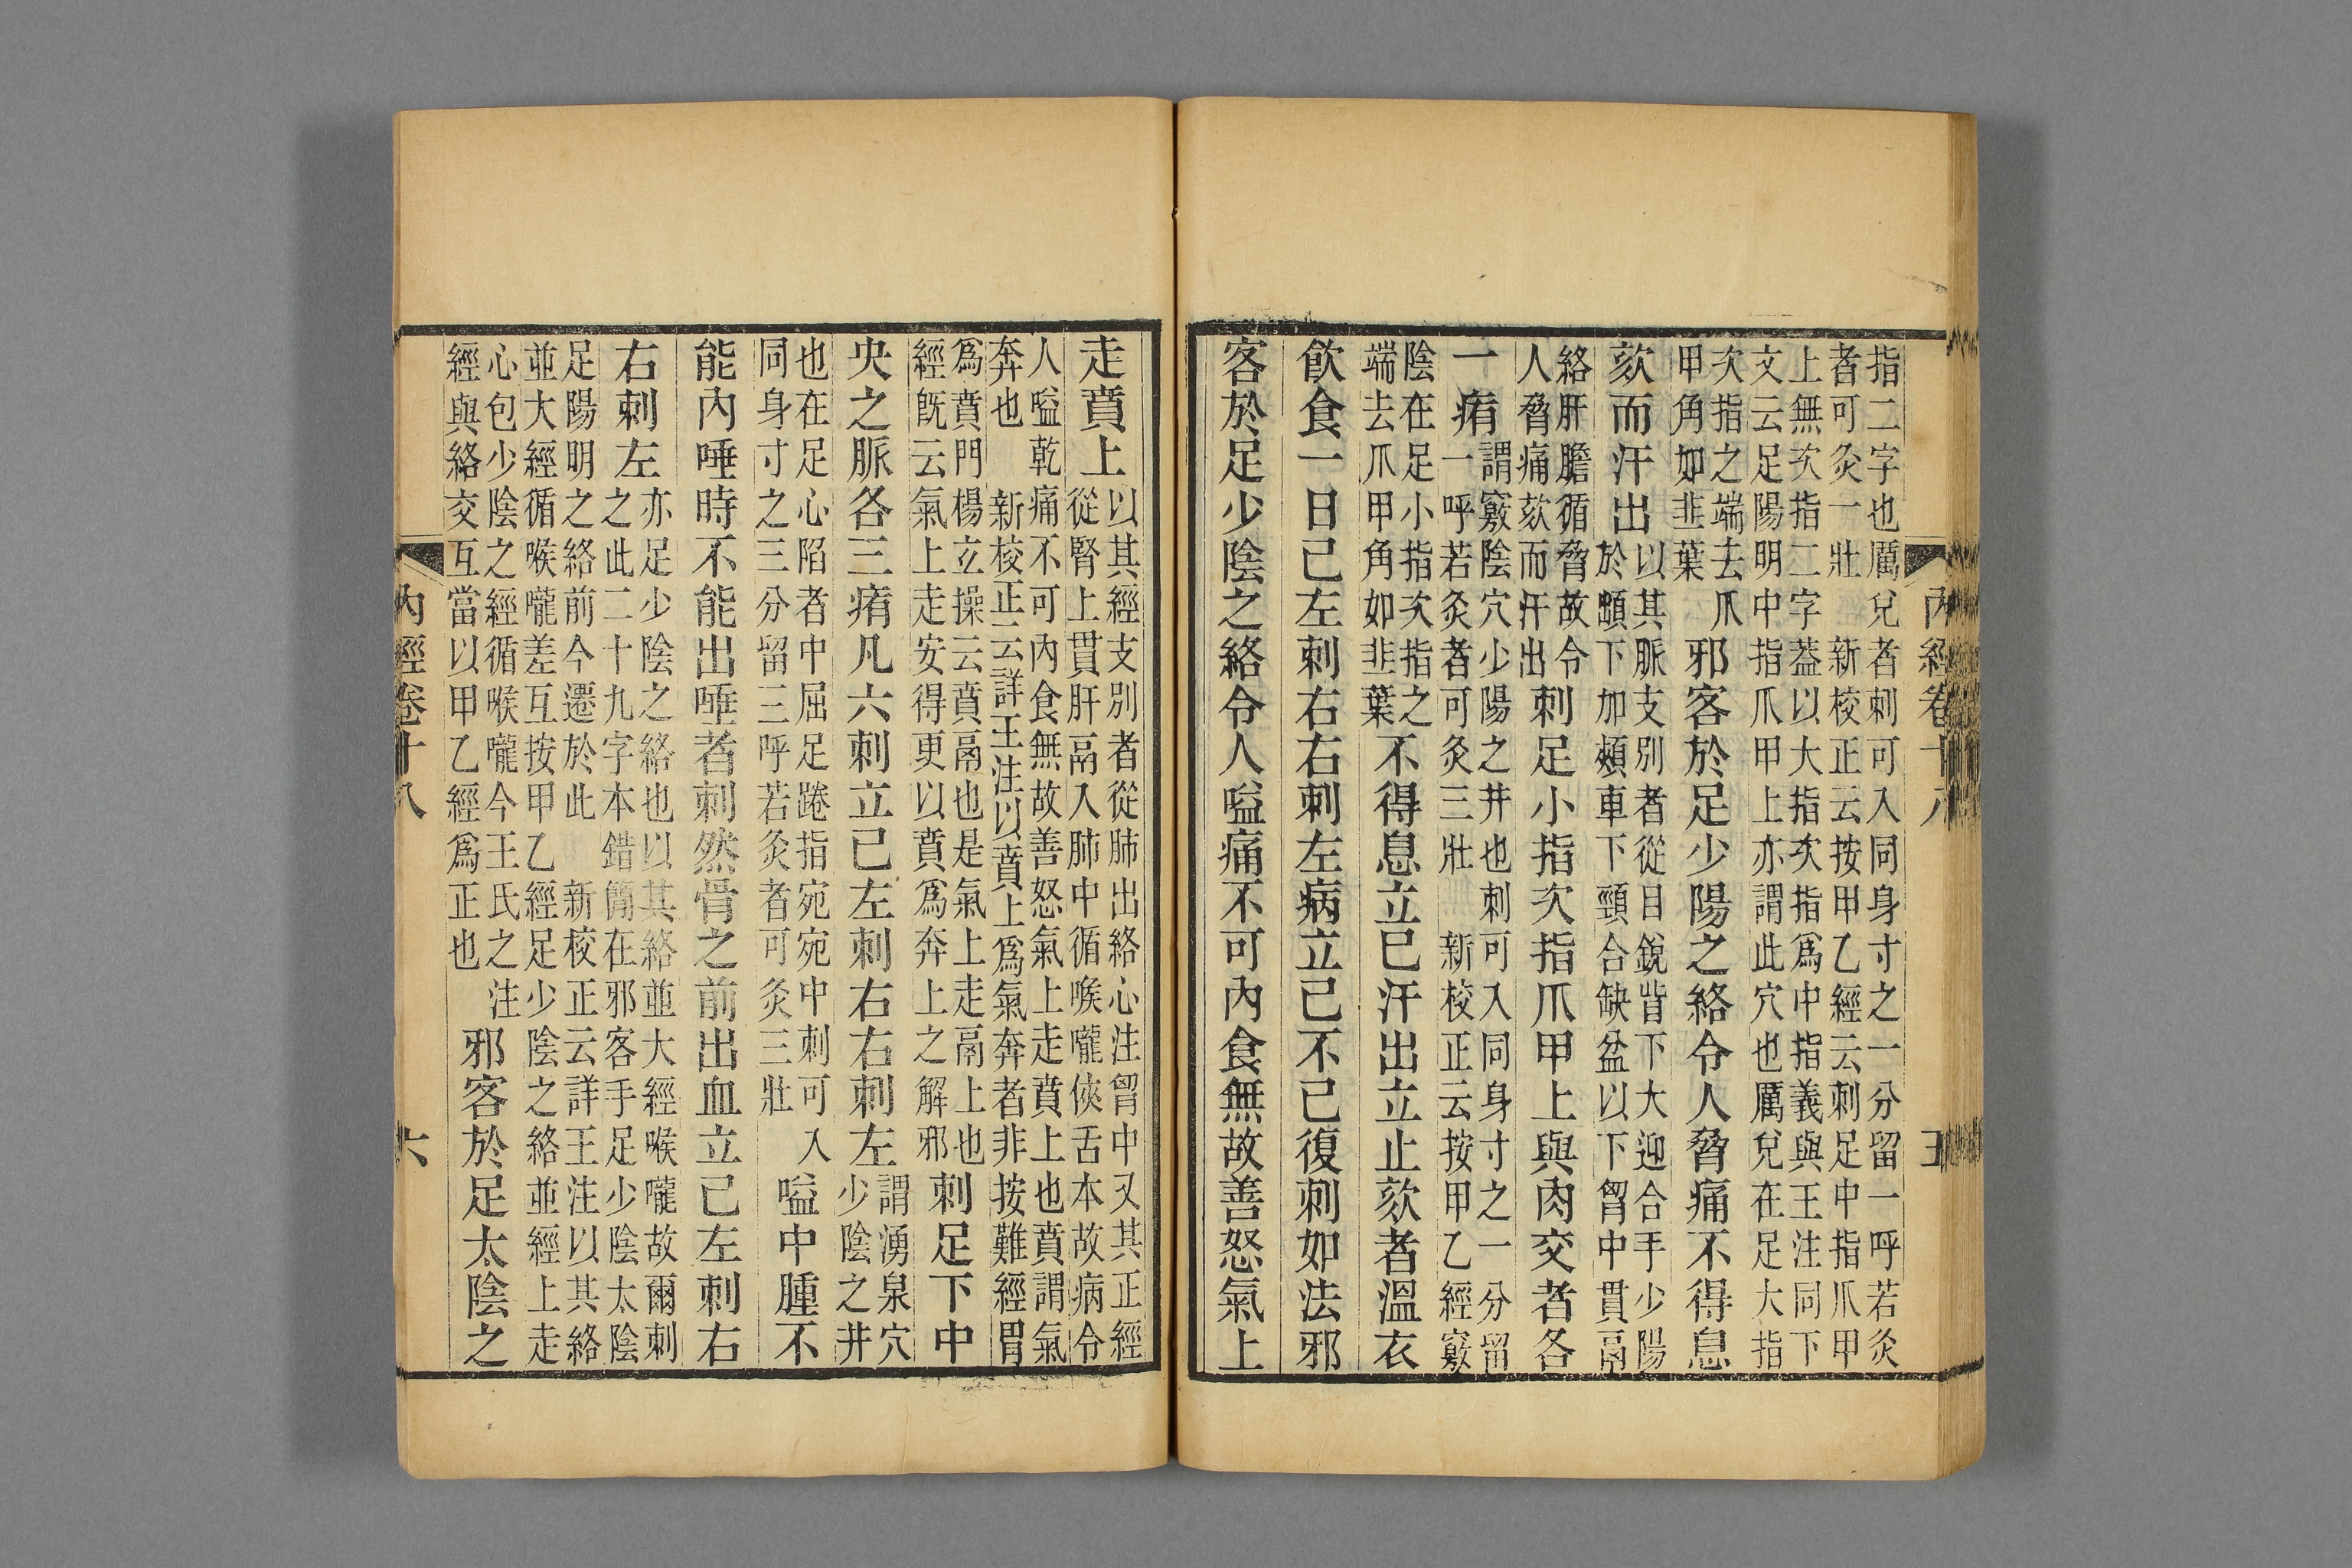 內經卷十八
五
指二字也厲兌者刺可入同身寸之一分留一呼若灸
者可灸一壯　新校正云按甲乙經云刺足中指爪甲
上無次指二字蓋以大指次指爲中指義與王注同下
文云足陽明中指爪甲上亦謂此穴也厲兌在足大指
次指之端去爪
甲角如韭葉
邪客於足少陽之絡令人脅痛不得息
欬而汗出
以其脈支別者從目銳眥下大迎合手少陽
於䪼下加頰車下頸合缺盆以下胷中貫鬲
絡肝膽循脅故令
人脅痛欬而汗出
刺足小指次指爪甲上與肉交者各
一痏
謂竅陰穴少陽之井也刺可入同身寸之一分留
一呼若灸者可灸三壯　新校正云按甲乙經竅
陰在足小指次指之
端去爪甲角如韭葉
不得息立已汗出立止欬者溫衣
飲食一日已左刺右右刺左病立已不已復刺如法邪
客於足少陰之絡令人嗌痛不可內食無故善怒氣上
走賁上
以其經支別者從肺出絡心注胷中又其正經
從腎上貫肝鬲入肺中循喉嚨俠舌本故病令
人嗌乾痛不可內食無故善怒氣上走賁上也賁謂氣
奔也　新校正云詳王注以賁上爲氣奔者非按難經胃
爲賁門楊立操云賁鬲也是氣上走鬲上也
經旣云氣上走安得更以賁爲奔上之解邪
刺足下中
央之脈各三痏凡六刺立已左刺右右刺左
謂湧泉穴
少陰之井
也在足心陷者中屈足踡指宛宛中刺可入
同身寸之三分留三呼若灸者可灸三壯
嗌中腫不
能內唾時不能出唾者刺然骨之前出血立已左刺右
右刺左
亦足少陰之絡也以其絡並大經喉嚨故爾刺
之此二十九字本錯簡在邪客手足少陰太陰
足陽明之絡前今遷於此　新校正云詳王注以其絡
並大經循喉嚨差互按甲乙經足少陰之絡並經上走
心包少陰之經循喉嚨今王氏之注
經與絡交互當以甲乙經爲正也
邪客於足太陰之
內經卷十八
六